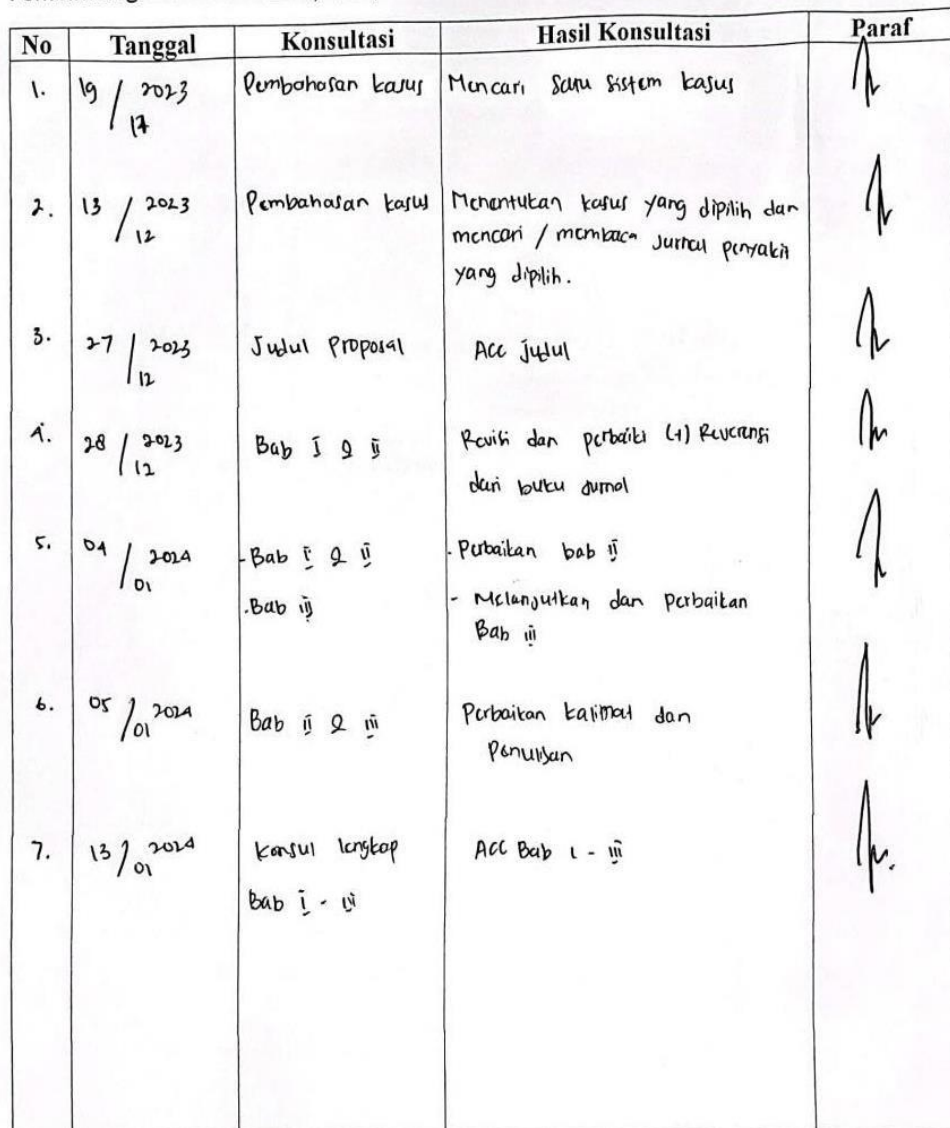 No Tanggal Konsultasi Hasil Konsultasi Paraf
1. 19 / 2023 Pembahasan kasus Mencari satu sistem kasus
2. 13 / 2023 Pembahasan kasus Menentukan kasus yang dipilih dan
12 mencari / membaca jurnal penyakit
yang dipilih.
3. 27 / 2023 Judul Proposal Acc judul
12
4. 28 / 2023 Bab I & II Revisi dan perbaiki
12 dari buku jurnal
5. 04 / 2024 - Bab I & II - Perbaikan bab II
01 - Bab III - Melanjutkan dan perbaikan
Bab III
6. 05 / 2024 Bab II & III Perbaikan kalimat dan
01 Penulisan
7. 13 / 2024 Konsul lengkap ACC Bab I - III
01
Bab I - III